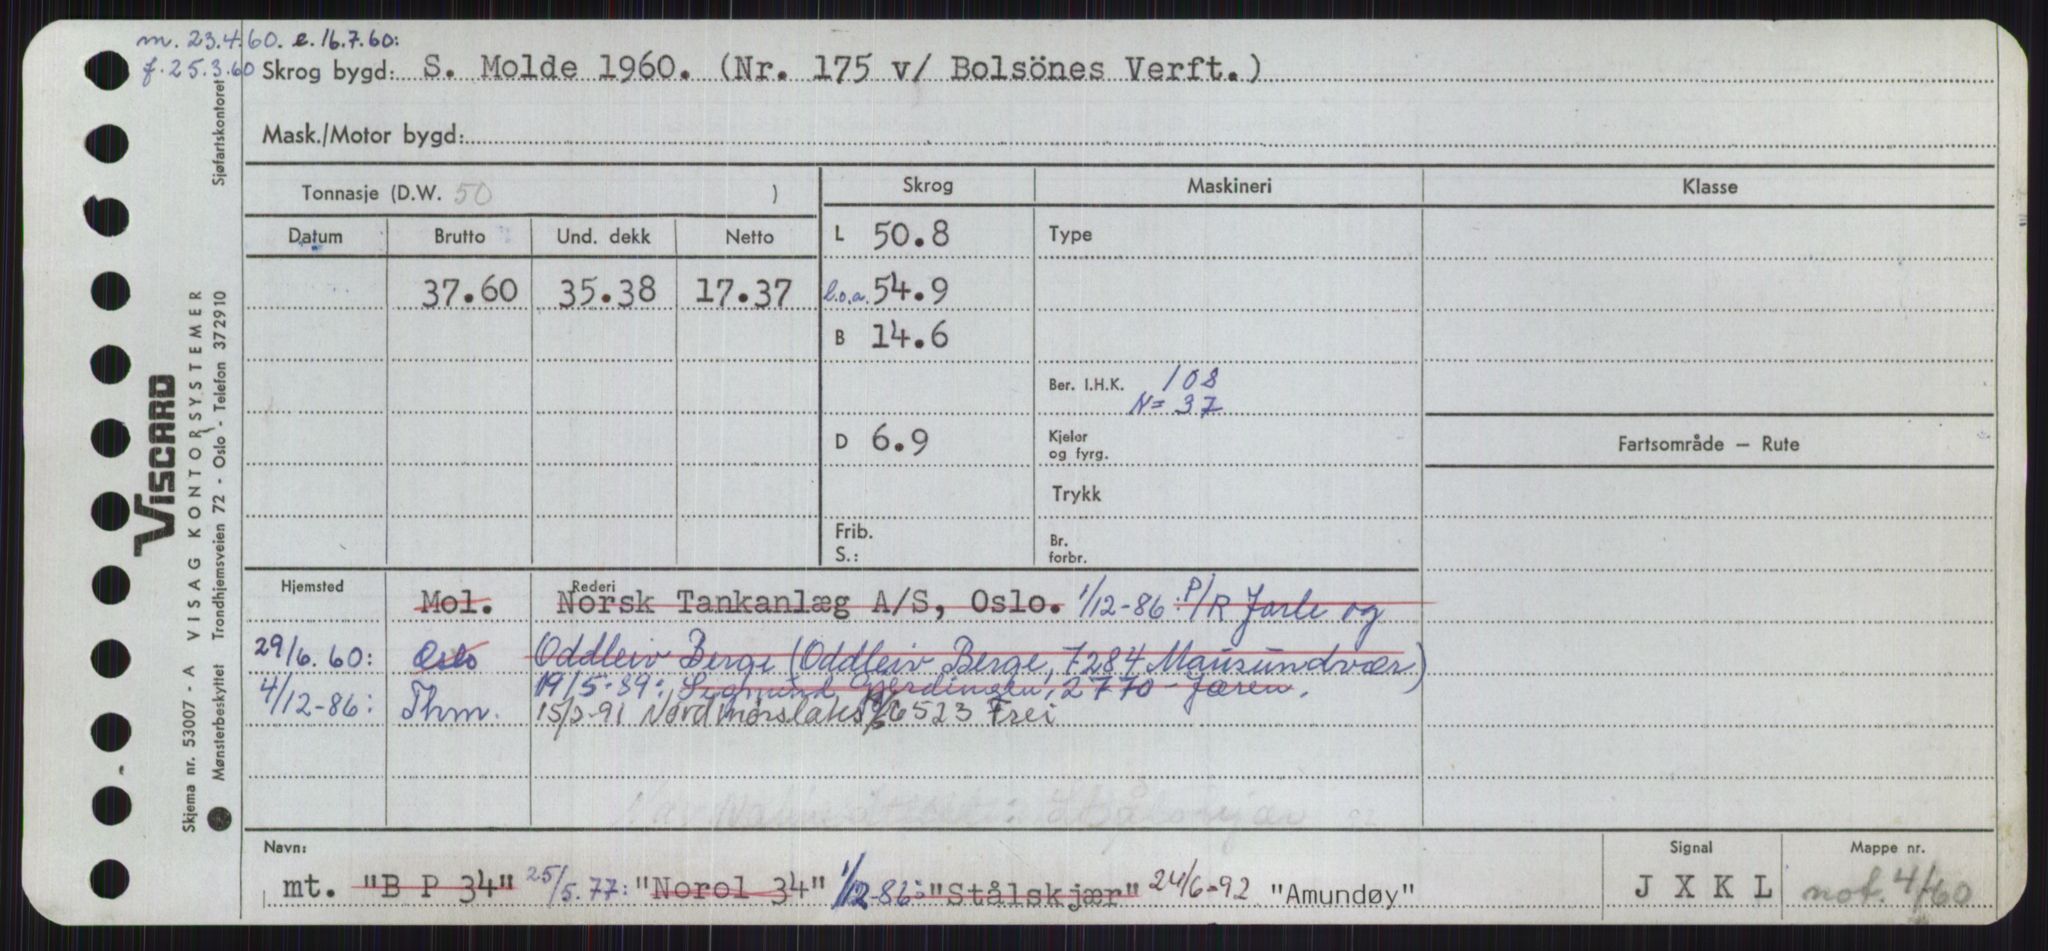 m. 23.4.60. e. 16.7.60:
f. 25.3.60 Skrog bygd: S. Molde 1960. (Nr. 175 v/ Bolsönes Verft.)
Mask./Motor bygd:
Tonnasje (D.W. 50 )
Skrog Maskineri Klasse
Datum Brutto Und. dekk Netto L 50.8 Type
37.60 35.38 17.37 l.o.a. 54.9
B 14.6
Ber. I.H.K. 108
N= 37
D 6.9 Kjeler
og fyrg.
Fartsområde – Rute
Trykk
Frib.
S.:
Br.
forbr.
Hjemsted Rederi
Mol. Norsk Tankanlæg A/S, Oslo. 1/12-86: P/R Jarle og
29/6.60: Oslo Oddleiv Berge (Oddleiv Berge, 7284 Mausundvær)
19/5-89: Sigmund 2770 – Jaren.
4/12-86: Thm. 15/2-91 Nordmørslaks 6523 Frei
Navn:
mt. "B P 34" 25/5.77: "Norol 34" 1/12-86: "Stålskjær" 24/6-92 "Amundøy"
Signal
J X K L
Mappe nr.
not. 4/60
VISCARD
VISAG KONTORSYSTEMER
Skjema nr. 53007 - A
Mønsterbeskyttet
Trondhjemsveien 72 - Oslo - Telefon 372910
Sjøfartskontoret